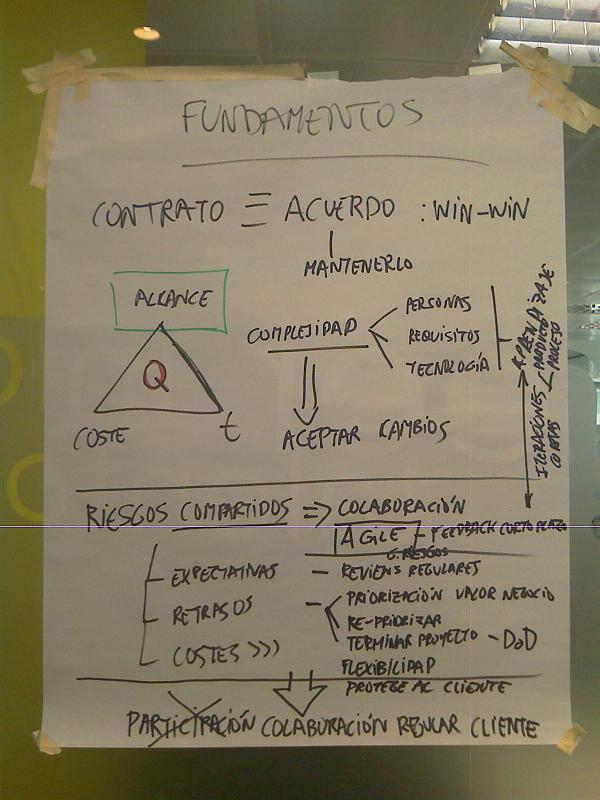 FUNDAMENTOS
CONTRATO ≡ ACUERDO : WIN-WIN
MANTENERLO
ALCANCE
Q
COSTE
t
COMPLEJIDAD
PERSONAS
REQUISITOS
TECNOLOGÍA
ACEPTAR CAMBIOS
APRENDIZAJE
PRODUCTO
PROCESO
ITERACIONES
RIESGOS COMPARTIDOS => COLABORACIÓN
AGILE - FEEDBACK CORTO PLAZO
G. RIESGOS
EXPECTATIVAS
RETRASOS
COSTES >>>
- REVIEWS REGULARES
- PRIORIZACIÓN VALOR NEGOCIO
RE-PRIORIZAR
TERMINAR PROYECTO - DoD
FLEXIBILIDAD
PROTEGE AL CLIENTE
PARTICIPACIÓN COLABORACIÓN REGULAR CLIENTE